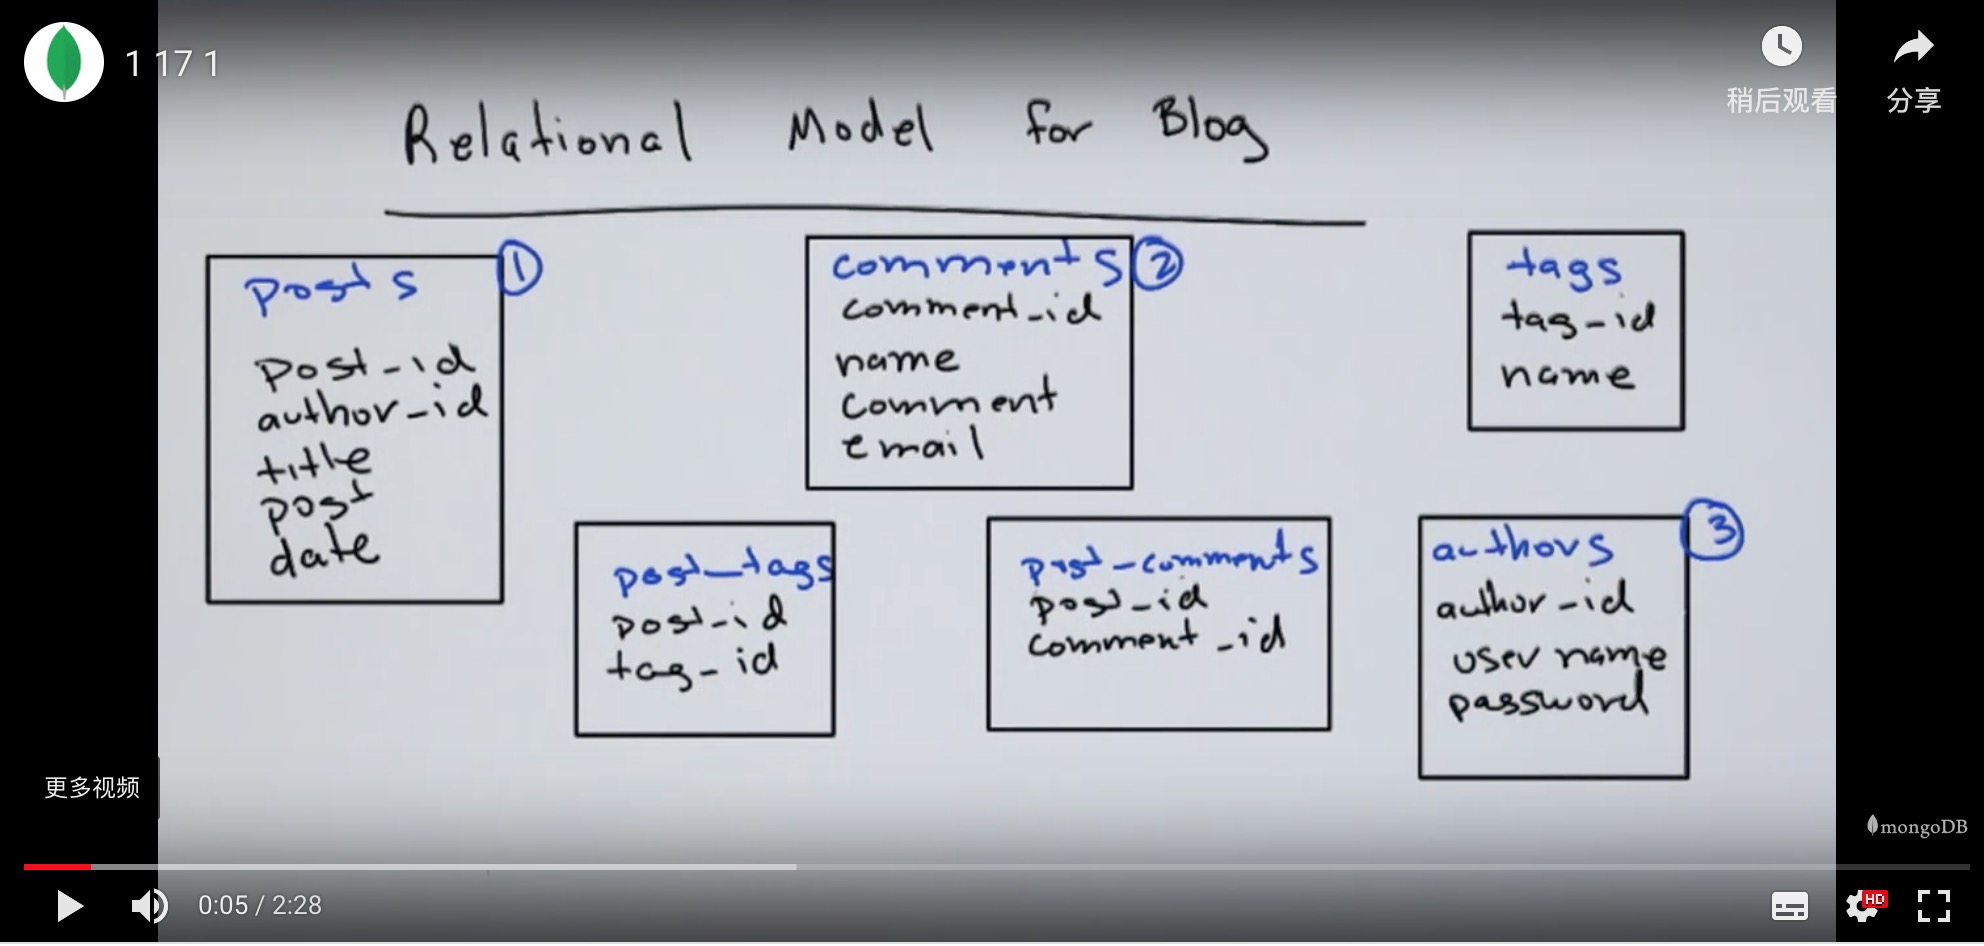 1 17 1
稍后观看
分享
Relational Model for Blog
posts
1
post_id
author_id
title
post
date
comments
2
comment_id
name
comment
email
tags
tag_id
name
post_tags
post_id
tag_id
post_comments
post_id
comment_id
authors
3
author_id
username
password
更多视频
mongoDB
0:05 / 2:28
HD